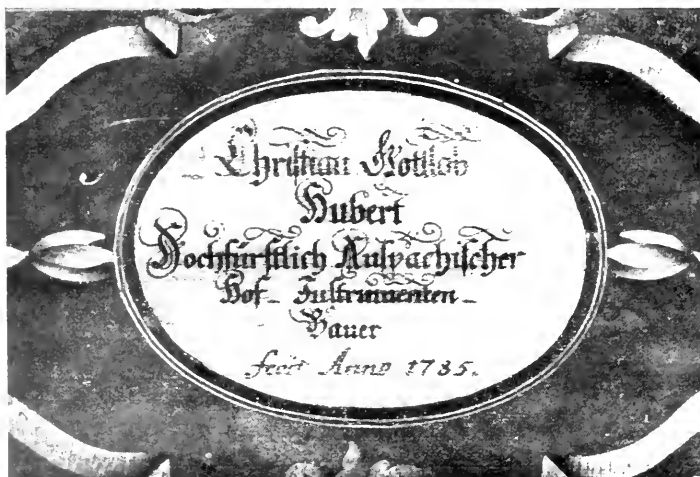 Christian Gottlob
Hubert
Hochfürstlich Anspachischer
Hof- Instrumenten-
Bauer
fecit Anno 1785.